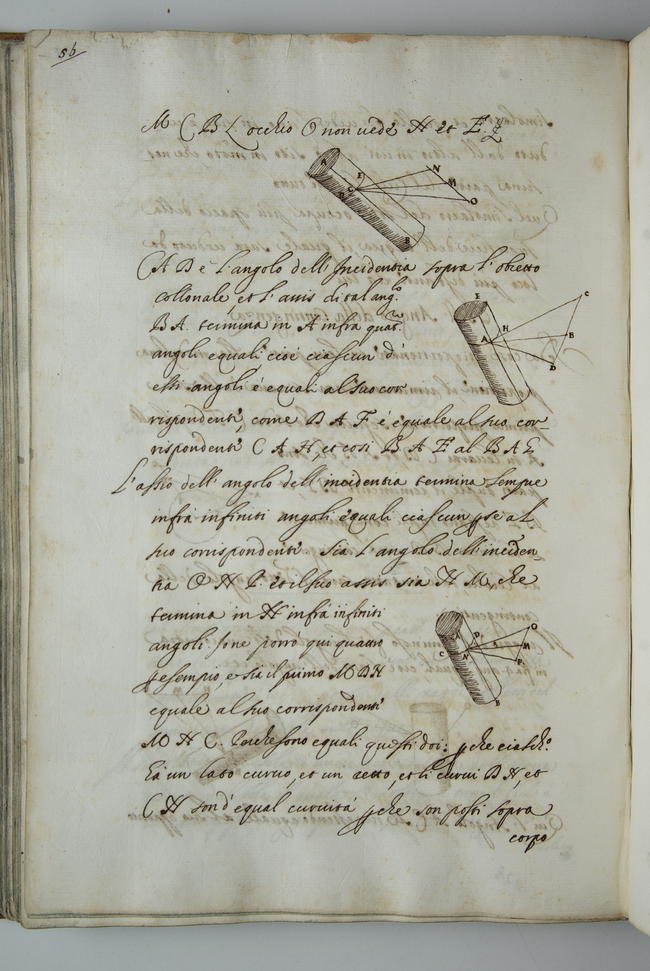 56
M C B L'occhio O non uede H et E.
A N E M C D O B
C A D è L'angolo dell'Incidentia sopra l'obietto
collonale, et l'axis di tal ang.o
B A. termina in A infra quatt.o
angoli equali cioè ciascun' d'
essi angoli è equali al suo cor
rispondenti, come B A F è equale al suo cor_
rispondenti C A H, et così B A E al B A E
E C H A B D
L'assio dell'angolo dell'incidentia termina sempre
infra infiniti angoli equali ciascun p se al
suo corrispondenti. Sia L'angolo dell'inciden_
tia O H P. et il suo assis sia H M, che
termina in H infra infiniti
angoli. Sone porrò qui quattro
p esempio, e sia il primo M D H
equale al suo corrispondenti
D O C N M P B
M H C. Perche sono equali questi doi: p che
hà un lato curuo, et un retto, et li curui D H, et
C H son d'equal curuità p che son posti sopra
corpo